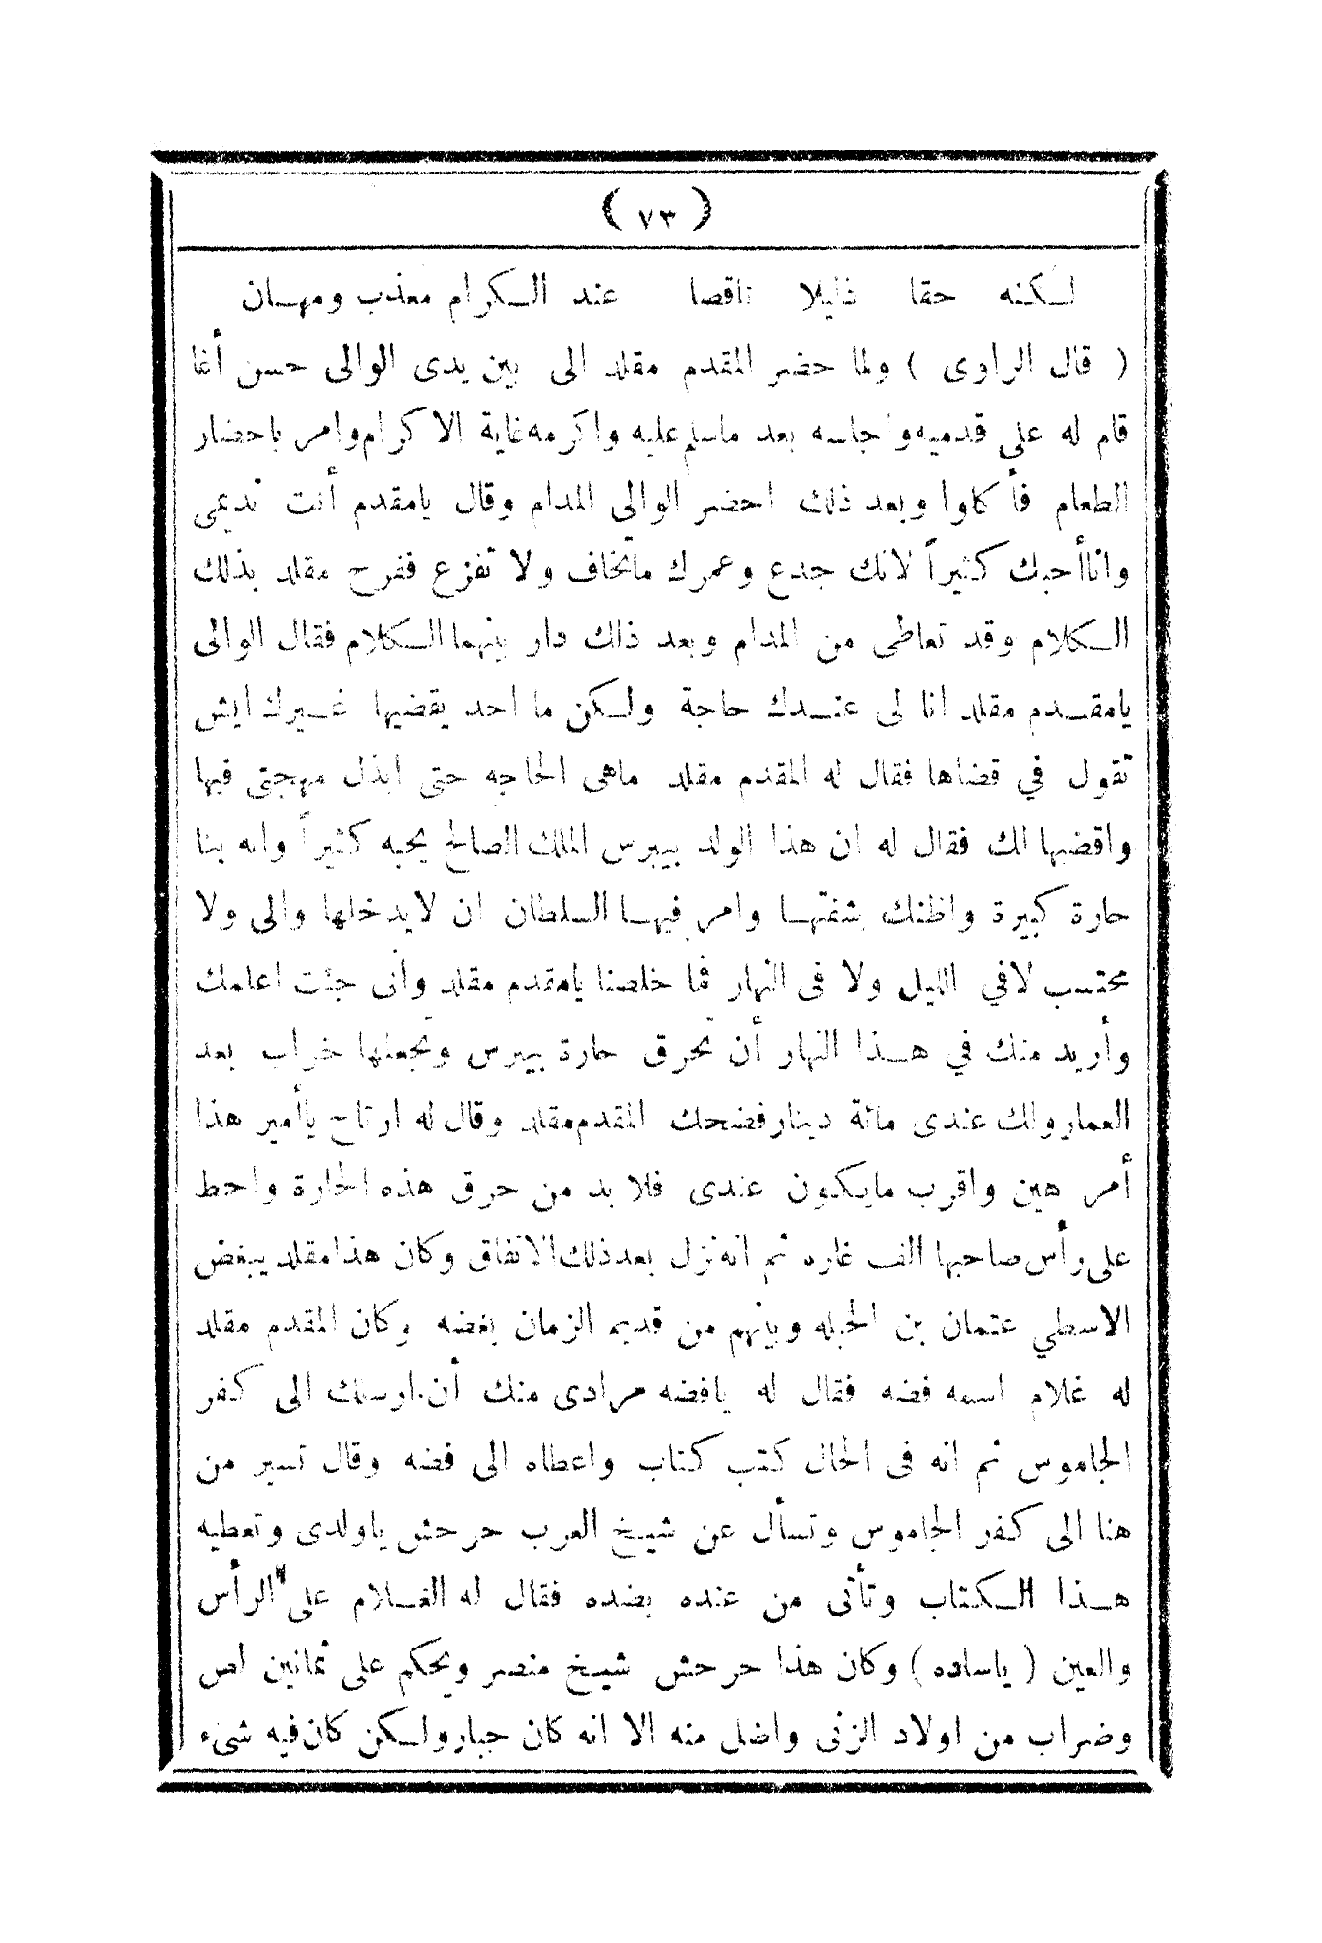 ( ٧٣ )
لكنه حقا ذليلا ناقصا عند الكرام معذب ومهان
( قال الراوى ) ولما حضر المقدم مقلد الى بين يدى الوالى حسن أغا
قام له على قدميه واجلسه بعد ماسلم عليه واكرمه غاية الاكرام وامر باحضار
الطعام فأكلوا وبعد ذلك احضر الوالى المدام وقال يامقدم أنت نديمى
واناأحبك كثيراً لانك جدع وعمرك ماتخاف ولا تفزع ففرح مقلد بذلك
الكلام وقد تعاطى من المدام وبعد ذلك دار بينهما الكلام فقال الوالى
يامقدم مقلد انا لى عندك حاجة ولكن ما احد يقضيها غيرك ايش
تقول في قضاها فقال له المقدم مقلد ماهى الحاجه حتى ابذل مهجتى فيها
واقضيها لك فقال له ان هذا الولد بيبرس الملك الصالح يحبه كثيراً وانه بنا
حارة كبيرة واظنك شفتها وامر فيها السلطان ان لايدخلها والى ولا
محتسب لافي الليل ولا فى النهار فما خلصنا يامقدم مقلد وأنى جئت اعلمك
وأريد منك في هذا النهار أن تحرق حارة بيبرس وتجعلها خراب بعد
العمار ولك عندى مائة دينار فضحك المقدم مقلد وقال له ارتاح ياأمير هذا
أمر هين واقرب مايكون عندى فلا بد من حرق هذه الحارة واحط
على رأس صاحبها الف غاره ثم انه نزل بعد ذلك الاتفاق وكان هذا مقلد يبغض
الاسطي عتمان بن الحبله وبينهم من قديم الزمان بغضه وكان المقدم مقلد
له غلام اسمه فضه فقال له يافضه مرادى منك أن ارسلك الى كفر
الجاموس ثم انه فى الحال كتب كتاب واعطاه الى فضه وقال تسير من
هنا الى كفر الجاموس وتسأل عن شيخ العرب حرحش ياولدى وتعطيه
هذا الكتاب وتأتى من عنده بضده فقال له الغلام على الرأس
والعين ( ياساده ) وكان هذا حرحش شيخ منصر ويحكم على ثمانين لص
وضراب من اولاد الزنى واضل منه الا انه كان جبار ولكن كان فيه شىء